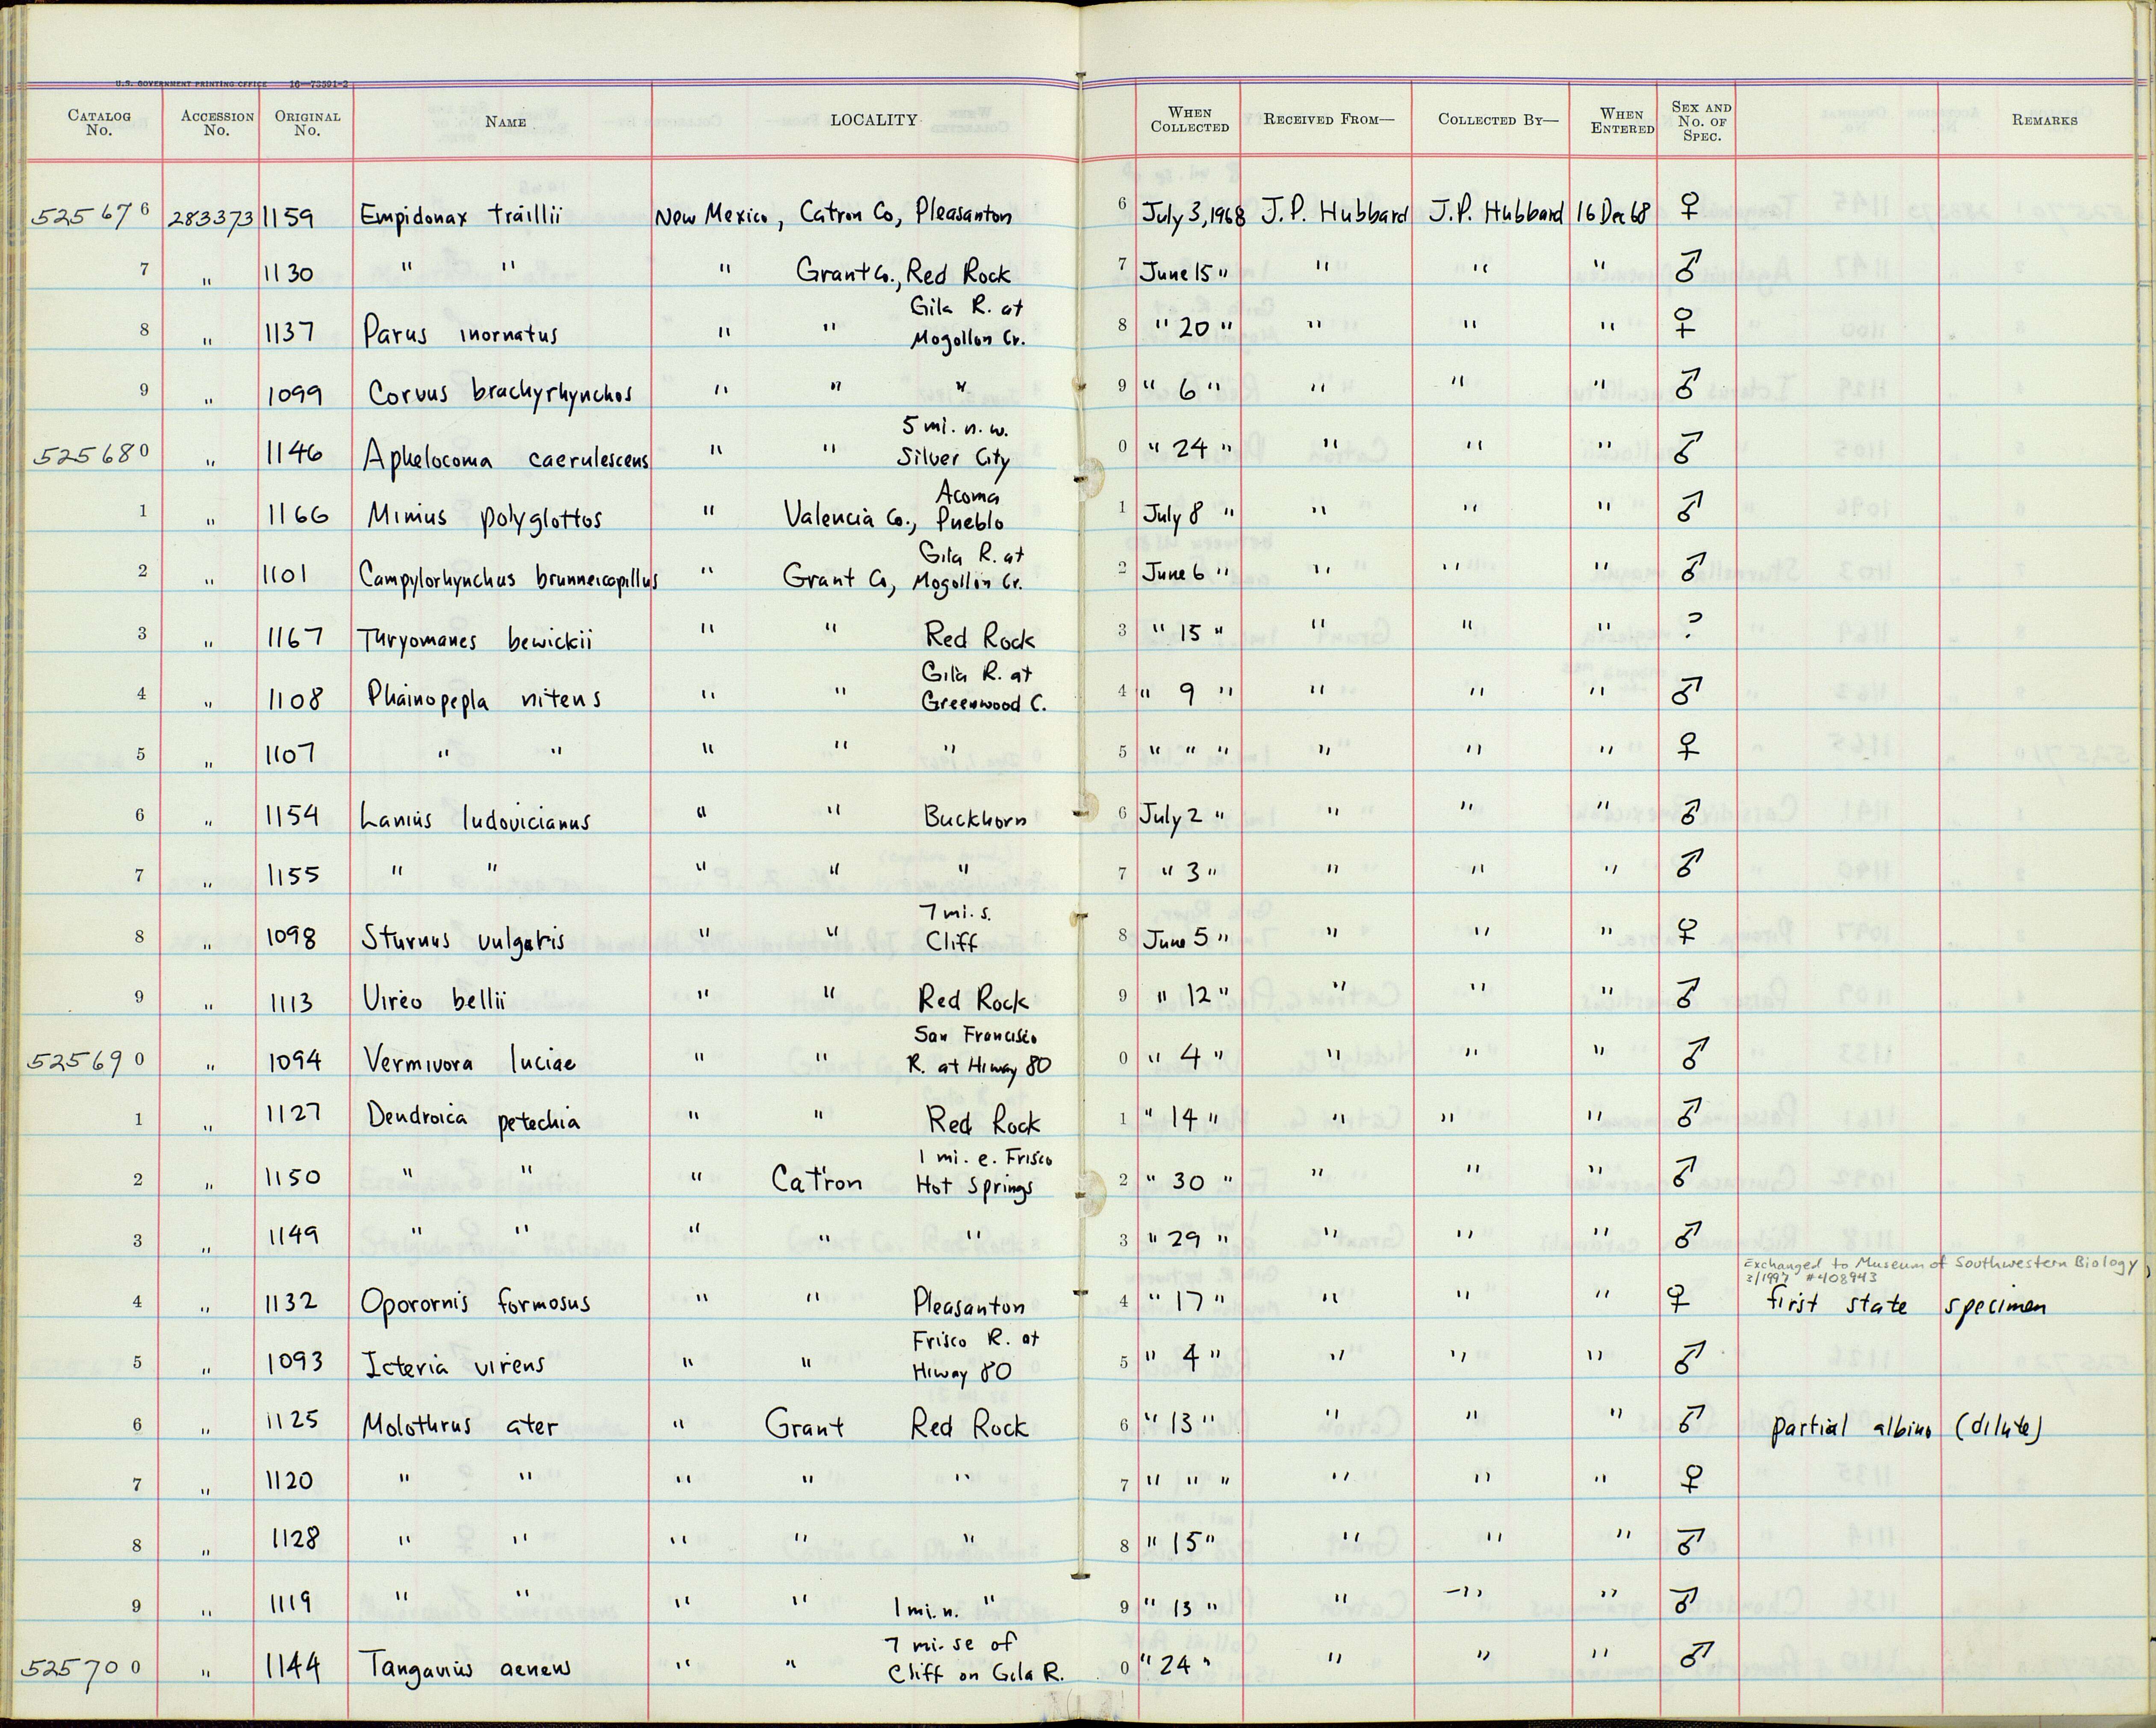 U.S. GOVERNMENT PRINTING OFFICE 16—73591-2
CATALOG No. ACCESSION No. ORIGINAL No. NAME LOCALITY WHEN COLLECTED RECEIVED FROM— COLLECTED BY— WHEN ENTERED SEX AND No. OF SPEC. REMARKS
525676 283373 1159 Empidonax traillii New Mexico, Catron Co, Pleasanton 6 July 3, 1968 J.P. Hubbard J.P. Hubbard 16 Dec 68 ♀
7 " 1130 " " " Grant Co., Red Rock 7 June 15 " " " " ♂
8 " 1137 Parus inornatus " " Gila R. at Mogollon Cr. 8 " 20 " " " " ♀
9 " 1099 Corvus brachyrhynchos " " " 9 " 6 " " " " ♂
525680 " 1146 Aphelocoma caerulescens " " 5 mi. n.w. Silver City 0 " 24 " " " " ♂
1 " 1166 Mimus polyglottos " Valencia Co., Acoma Pueblo 1 July 8 " " " " ♂
2 " 1101 Campylorhynchus brunneicapillus " Grant Co, Gila R. at Mogollon Cr. 2 June 6 " " " " ♂
3 " 1167 Thryomanes bewickii " " Red Rock 3 " 15 " " " " ?
4 " 1108 Phainopepla nitens " " Gila R. at Greenwood C. 4 " 9 " " " " ♂
5 " 1107 " " " " " 5 " " " " " " ♀
6 " 1154 Lanius ludovicianus " " Buckhorn 6 July 2 " " " " ♂
7 " 1155 " " " " " 7 " 3 " " " " ♂
8 " 1098 Sturnus vulgaris " " 7 mi. s. Cliff 8 June 5 " " " " ♀
9 " 1113 Vireo bellii " " Red Rock 9 " 12 " " " " ♂
525690 " 1094 Vermivora luciae " " San Francisco R. at Hiway 80 0 " 4 " " " " ♂
1 " 1127 Dendroica petechia " " Red Rock 1 " 14 " " " " ♂
2 " 1150 " " " Catron 1 mi. e. Frisco Hot Springs 2 " 30 " " " " ♂
3 " 1149 " " " " " 3 " 29 " " " " ♂
Exchanged to Museum of Southwestern Biology,
3/1997 #408943
4 " 1132 Oporornis formosus " " Pleasanton 4 " 17 " " " " ♀ first state specimen
5 " 1093 Icteria virens " " Frisco R. at Hiway 80 5 " 4 " " " " ♂
6 " 1125 Molothrus ater " Grant Red Rock 6 " 13 " " " " ♂ partial albino (dilute)
7 " 1120 " " " " " 7 " " " " " " ♀
8 " 1128 " " " " " 8 " 15 " " " " ♂
9 " 1119 " " " " 1 mi. n. " 9 " 13 " " " " ♂
525700 " 1144 Tangavius aeneus " " 7 mi. se of Cliff on Gila R. 0 " 24 " " " " ♂